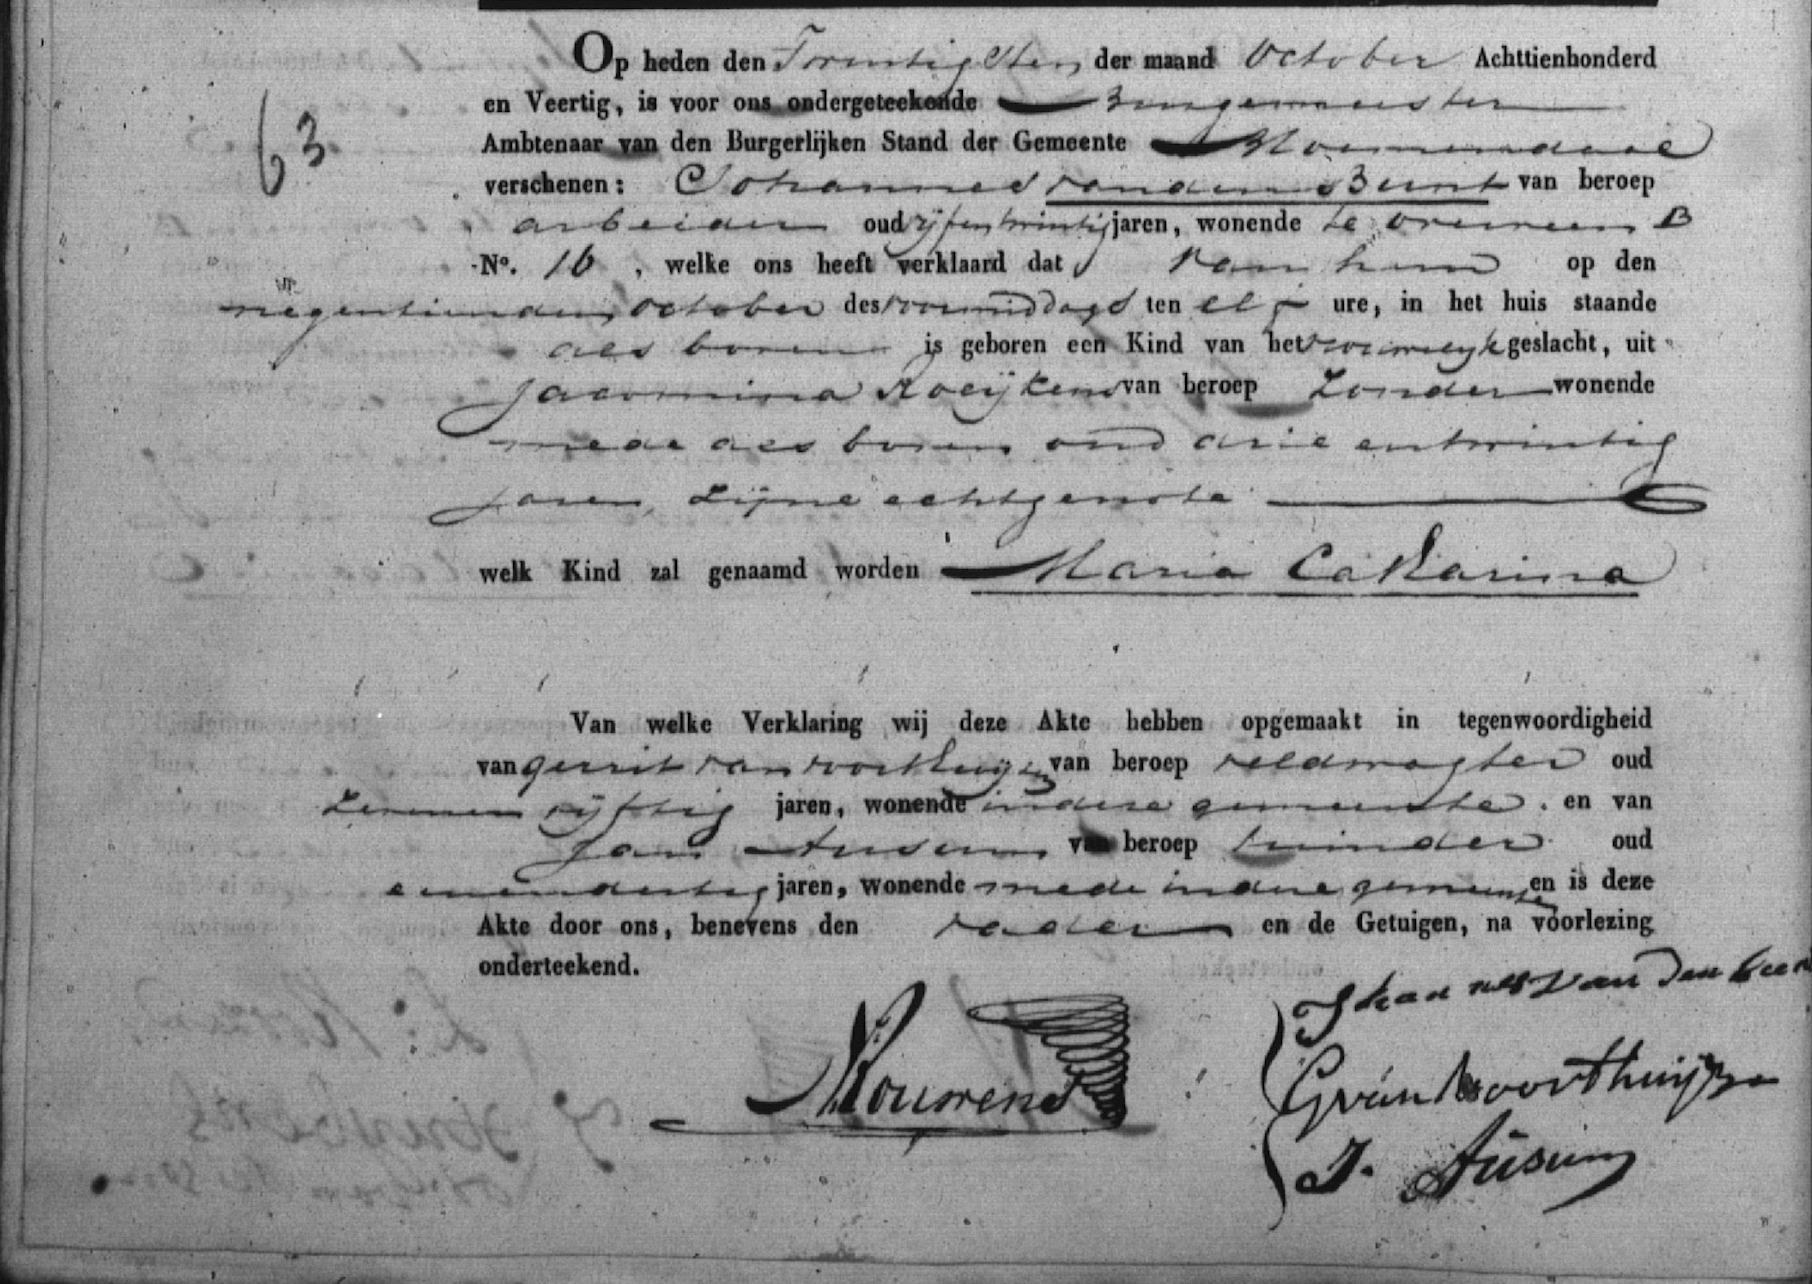 Op heden den Twintigsten der maand October Achttienhonderd
63
en Veertig, is voor ons ondergeteekende Burgemeester
Ambtenaar van den Burgerlijken Stand der Gemeente Bloemendaal
verschenen: Johannes van den Bunt van beroep
arbeider oud vijfentwintig jaren, wonende te overveen B
No. 16, welke ons heeft verklaard dat van hem op den
negentienden October des voormiddags ten elf ure, in het huis staande
als boven is geboren een Kind van het vrouwelijk geslacht, uit
Jacomina Roeijkens van beroep Zonder wonende
mede als boven oud drie entwintig
jaren, zijne echtgenote
welk Kind zal genaamd worden Maria Catharina
Van welke Verklaring wij deze Akte hebben opgemaakt in tegenwoordigheid
van gerrit van voorthuijzen van beroep veldwagter oud
zevenen vijftig jaren, wonende in deze gemeente. en van
Jan Ausum van beroep tuinder oud
eenendertig jaren, wonende mede in deze gemeente en is deze
Akte door ons, benevens den vader en de Getuigen, na voorlezing
onderteekend.
van den
G van Voorthuijzen
J. Ausum